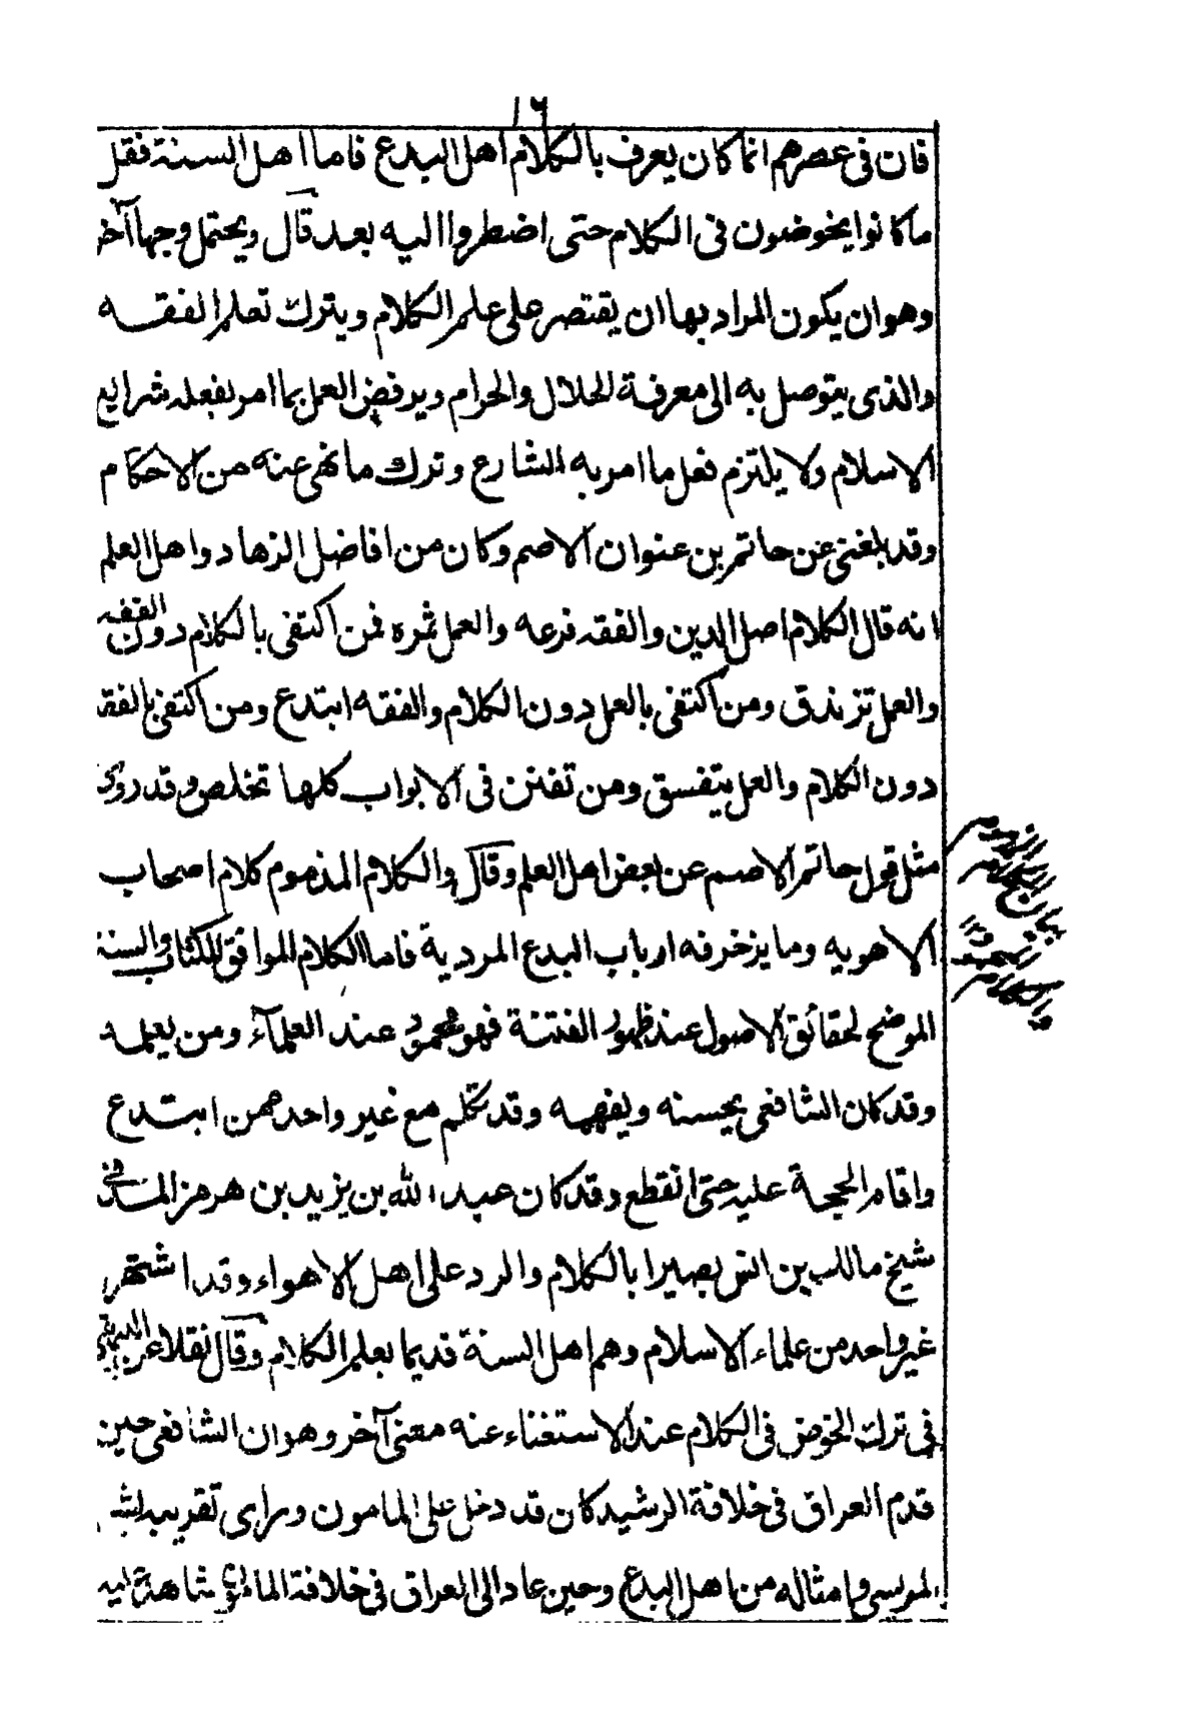 ١٦
فان فى عصرهم انما كان يعرف بالكلام اهل البدع فاما اهل السنة فقل
ما كانوا يخوضون فى الكلام حتى اضطروا اليه بعد قال ويحتمل وجها آخر
وهو ان يكون المراد بها ان يقتصر على علم الكلام ويترك تعلم الفقه
والذى يتوصل به الى معرفة الحلال والحرام ويرفض العمل بما امر بفعله شرايع
الاسلام ولا يلتزم فعل ما امر به الشارع وترك ما نهى عنه من الاحكام
وقد بلغنى عن حاتم بن عنوان الاصم وكان من افاضل الزهاد واهل العلم
انه قال الكلام اصل الدين والفقه فرعه والعمل ثمره فمن اكتفى بالكلام دون الفقه
والعمل تزندق ومن اكتفى بالعمل دون الكلام والفقه ابتدع ومن اكتفى بالفقه
دون الكلام والعمل يتفسق ومن تفنن فى الابواب كلها تخلص وقد روى
مثل قول حاتم الاصم عن بعض اهل العلم وقال والكلام المذموم كلام اصحاب
الاهويه وما يزخرفه ارباب البدع المردية فاما الكلام الموافق للكتاب والسنة
الموضح لحقائق الاصول عند ظهور الفتنة فهو محمود عند العلمآء ومن يعلمه
وقد كان الشافعى يحسنه ويفهمه وقد تكلم مع غير واحد ممن ابتدع
واقام الحجة عليه حتى انقطع وقد كان عبد الله بن يزيد بن هرمز المدنى
شيخ مالك بن انس بصيرا بالكلام والرد على اهل الاهواء وقد اشتهر
غير واحد من علماء الاسلام وهم اهل السنة قديما بعلم الكلام وقال نقلا عن البيهقى
فى ترك الخوض فى الكلام عند الاستغناء عنه معنى آخر وهو ان الشافعى حين
قدم العراق فى خلافة الرشيد كان قد دخل على المامون وراى تقريبه لبشر
المريسى وامثاله من اهل البدع وحين عاد الى العراق فى خلافة المامون شاهد
بيان الكلام المذموم
والكلام